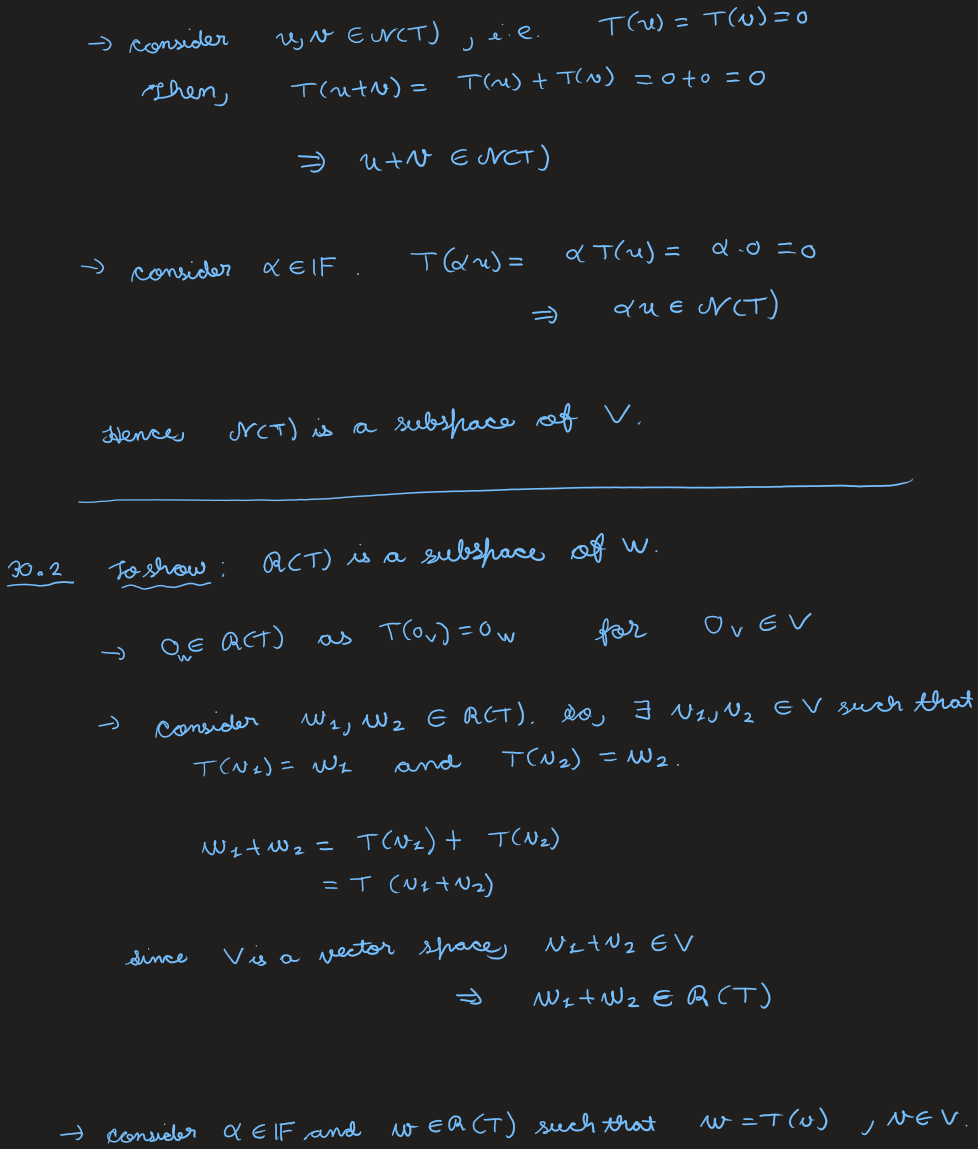 → consider u, v ∈ N(T) , i.e. T(u) = T(v) = 0
Then, T(u+v) = T(u) + T(v) = 0+0 = 0
⇒ u+v ∈ N(T)
→ consider α ∈ IF . T(αu) = αT(u) = α.0 = 0
⇒ αu ∈ N(T)
Hence, N(T) is a subspace of V.
30.2 To show : R(T) is a subspace of W.
→ 0_w ∈ R(T) as T(0_v) = 0_w for 0_v ∈ V
→ consider w₁, w₂ ∈ R(T). so, ∃ v₁, v₂ ∈ V such that
T(v₁) = w₁ and T(v₂) = w₂.
w₁ + w₂ = T(v₁) + T(v₂)
= T (v₁+v₂)
since V is a vector space, v₁+v₂ ∈ V
⇒ w₁+w₂ ∈ R(T)
→ consider α ∈ IF and w ∈ R(T) such that w = T(v) , v ∈ V.